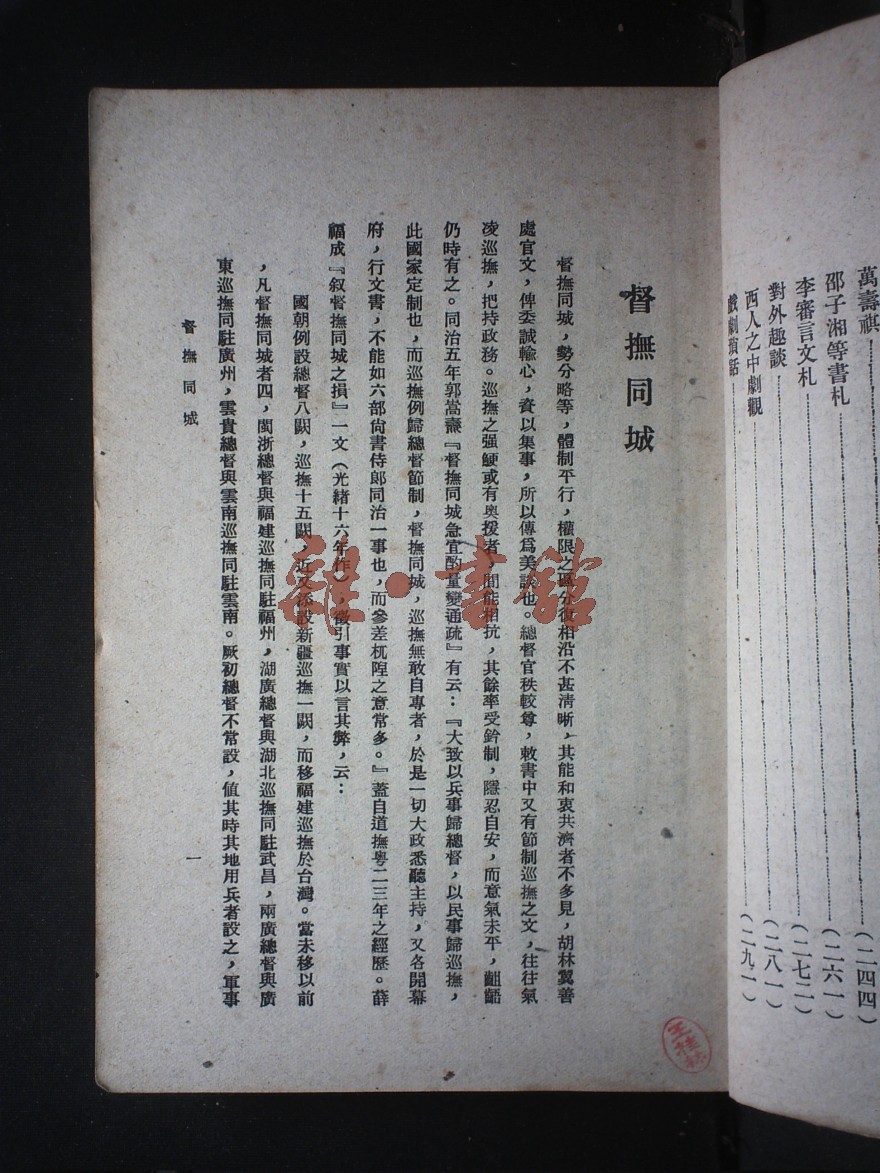 萬壽祺(二四四)
邵子湘等書札(二六一)
李審言文札(二七二)
對外趣談(二八一)
西人之中劇觀(二九一)
戲劇瑣話
督撫同城
督撫同城，勢分略等，體制平行，權限之區分復相沿不甚清晰，其能和衷共濟者不多見，胡林翼善
處官文，俾委誠輸心，資以集事，所以傳爲美談也。總督官秩較尊，敕書中又有節制巡撫之文，往往氣
凌巡撫，把持政務。巡撫之强鯁或有奧援者，間能相抗，其餘率受鈐制，隱忍自安，而意氣未平，齟齬
仍時有之。同治五年郭嵩燾『督撫同城急宜酌量變通疏』有云：『大致以兵事歸總督，以民事歸巡撫，
此國家定制也，而巡撫例歸總督節制，督撫同城，巡撫無敢自專者，於是一切大政悉聽主持，又各開幕
府，行文書，不能如六部尙書侍郞同治一事也，而參差杌隉之意常多。』蓋自道撫粵二三年之經歷。薛
福成『叙督撫同城之損』一文（光緒十六年作），徵引事實以言其弊，云：
國朝例設總督八闕，巡撫十五闕，近又添設新疆巡撫一闕，而移福建巡撫於台灣。當未移以前
，凡督撫同城者四，閩浙總督與福建巡撫同駐福州，湖廣總督與湖北巡撫同駐武昌，兩廣總督與廣
東巡撫同駐廣州，雲貴總督與雲南巡撫同駐雲南。厥初總督不常設，値其時其地用兵者設之，軍事
督撫同城
一
雜·書館